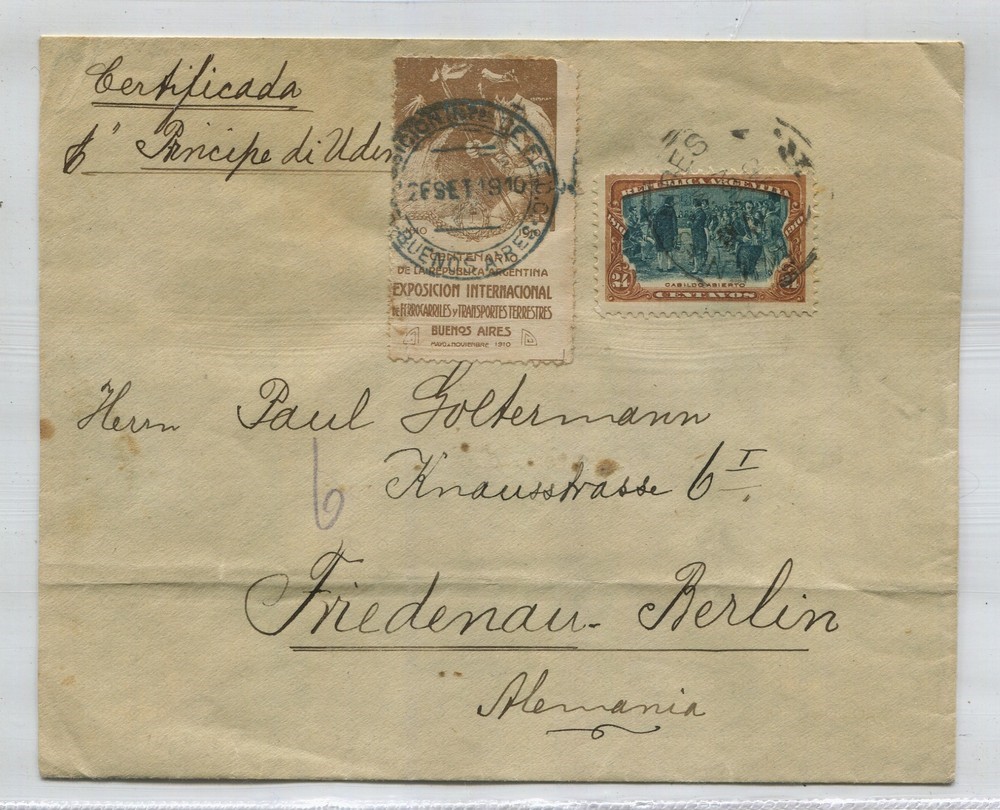 Certificada
p" Principe di Udin
26SET1910
BUENOS AIRES
1910
CENTENARIO
DE LA REPUBLICA ARGENTINA
EXPOSICION INTERNACIONAL
DE FERROCARRILES Y TRANSPORTES TERRESTRES
BUENOS AIRES
MAYO A NOVIEMBRE 1910
REPUBLICA ARGENTINA
1810 1910
CABILDO ABIERTO
24 CENTAVOS 24
Herrn Paul Goltermann
6
Knausstrasse 6 I
Friedenau - Berlin
Alemania